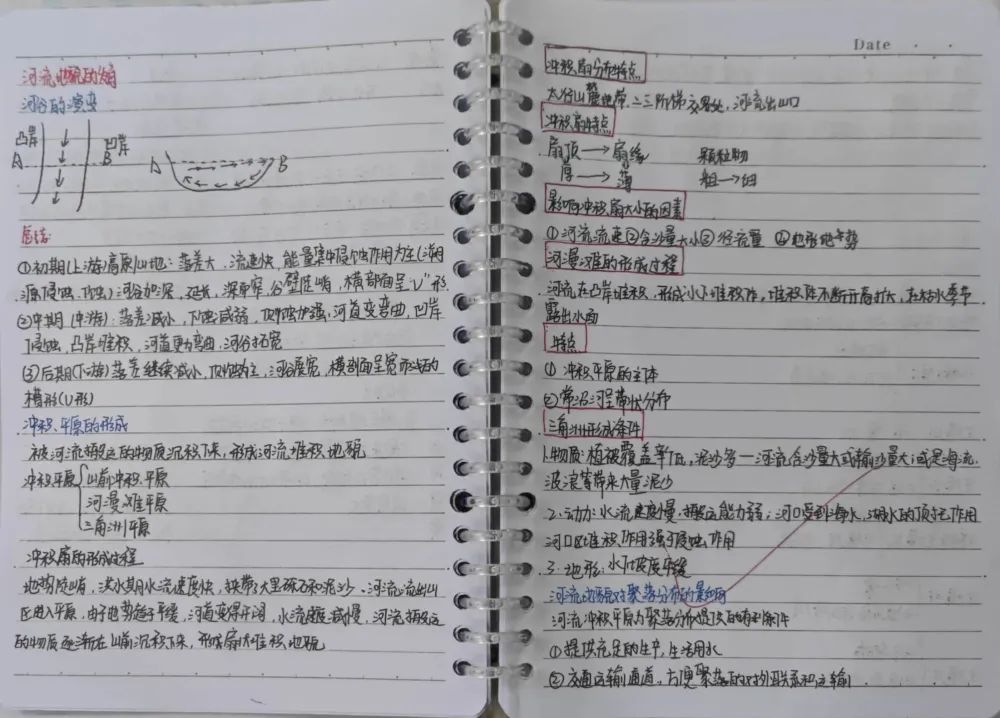 河流地貌的发育
河谷的演变
凸岸 凹岸
A B A B
总结:
①初期(上游高原山地:落差大,流速快,能量集中侵蚀作用为主(溯
源侵蚀,下蚀)河谷加深,延长,深而窄,谷壁陡峭,横剖面呈"V"形
②中期(中游):落差减小,下蚀减弱,侧蚀加强,河道变弯曲,凹岸
侵蚀,凸岸堆积,河道更为弯曲,河谷拓宽
③后期(下游)落差继续减小,侧蚀为主,河谷展宽,横剖面呈宽而浅的
槽形(U形)
冲积平原的形成
被河流搬运的物质沉积下来,形成河流堆积地貌
冲积平原 山前冲积平原
河漫滩平原
三角洲平原
冲积扇的形成过程
地势陡峭,洪水期水流速度快,挟带大量砾石和泥沙、河流流出山
区进入平原,由于地势趋于平缓,河道变得开阔,水流速度减慢,河流搬运
的物质逐渐在山前沉积下来,形成扇状堆积地貌
Date
冲积扇分布特点
太行山麓地带,二三阶梯交界处,河流出山口
冲积扇特点
扇顶→扇缘 颗粒物
厚→薄 粗→细
影响冲积扇大小的因素
①河流流速②含沙量大小③径流量 ④地形地势
河漫滩的形成过程
河流在凸岸堆积,形成水下堆积体,堆积体不断升高扩大,在枯水季节
露出水面
特点
① 冲积平原的主体
②常沿河呈带状分布
三角洲形成条件
1.物质:植被覆盖率低,泥沙多一河流含沙量大或输沙量大;或是海流
波浪等带来大量泥沙
2.动力:水流速度慢,搬运能力弱;河口受到海水,湖水的顶托作用
河口区堆积作用强于侵蚀作用
3.地形:水下坡度平缓
河流地貌对聚落分布的影响
河流冲积平原为聚落分布提供的有利条件
①提供充足的生产,生活用水
②交通运输通道,方便聚落的对外联系和运输